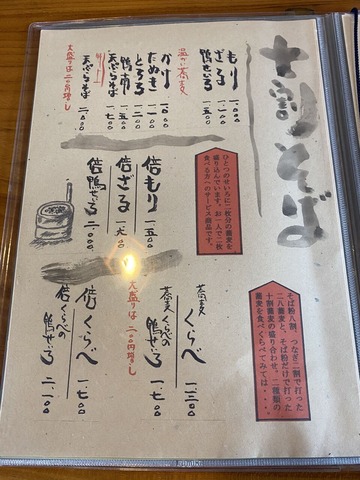 十割そば
もり 一、〇〇〇
ざる 一、一〇〇
鴨せいろ 一、五〇〇
温かい蕎麦
かけ 一、〇〇〇
たぬき 一、一〇〇
とろろ 一、二〇〇
鴨南 一、五〇〇
天ぷらそば 一、七〇〇
天ぷらそば 二、〇〇〇
大盛りは二〇〇円増し
ひとつのせいろに二枚分の蕎麦を
盛り込んでいます。お一人で二枚
食べる方へのサービス商品です。
倍もり 一、五〇〇
倍ざる 一、六〇〇
倍鴨せいろ 二、〇〇〇
そば粉八割、つなぎ二割で打った
二八蕎麦と、そば粉だけで打った
十割蕎麦の盛り合わせ。二種類の
蕎麦を食べくらべてみては・・・。
蕎麦くらべ 一、三〇〇
蕎麦くらべの鴨せいろ 一、七〇〇
大盛りは二〇〇円増し
倍くらべ 一、七〇〇
倍くらべの鴨せいろ 二、一〇〇